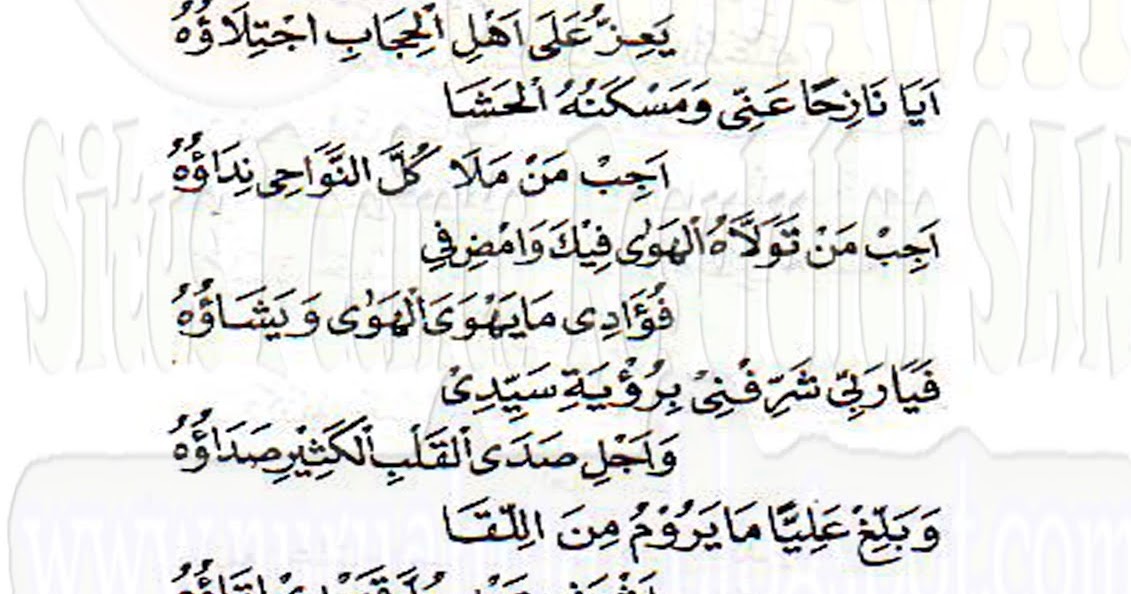 يَعِزُّ عَلَى اَهْلِ الْحِجَابِ اجْتِلَاؤُهُ
اَيَا نَازِحًا عَنِّى وَمَسْكَنُهُ الْحَشَا
اَجِبْ مَنْ مَلَا كُلَّ النَّوَاحِى نِدَاؤُهُ
اَجِبْ مَنْ تَوَلَّاهُ الْهَوٰى فِيْكَ وَامْضِ فِي
فُؤَادِى مَا يَهْوَى الْهَوٰى وَيَشَاؤُهُ
فَيَا رَبِّى شَرِّفْنِىْ بِرُؤْيَةِ سَيِّدِىْ
وَاَجْلِ صَدَى الْقَلْبِ الْكَثِيْرِ صَدَاؤُهُ
وَبَلِّغْ عَلِيًّا مَا يَرُوْمُ مِنَ اللِّقَا